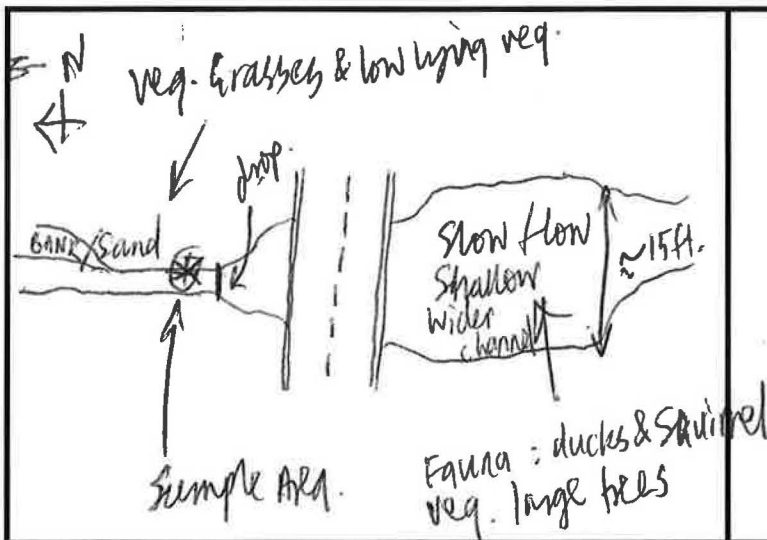 N
veg. Grasses & low lying veg.
drop.
BANK/Sand
Slow flow
Shallow
wider
channel
~15ft.
Sample Area.
Fauna : ducks & Squirrel
veg. large trees